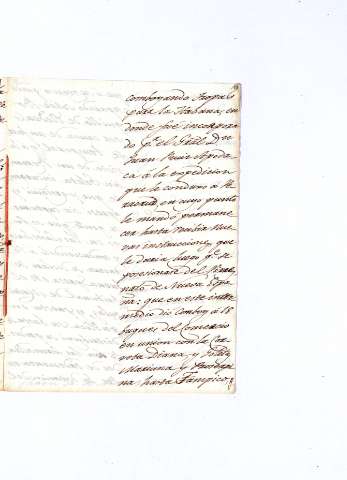 comboyando tropas
para la Habana, en
donde fue incorpora
do pr. el Sr. Dn.
Juan Ruiz Apoda
ca à la expedicion
que le condujo à Ve
racruz, en cuyo punto
le mandó permane
cer hasta recibir nue
vas instrucciones que
le daria luego qe. se
posesionase del Virrey
nato de Nueva Espa
ña: que en este inter
medio dio comboy à 18
buques del Comercio
en union con la Cor
veta Diana, y
Mariana y
na hasta Tampico;